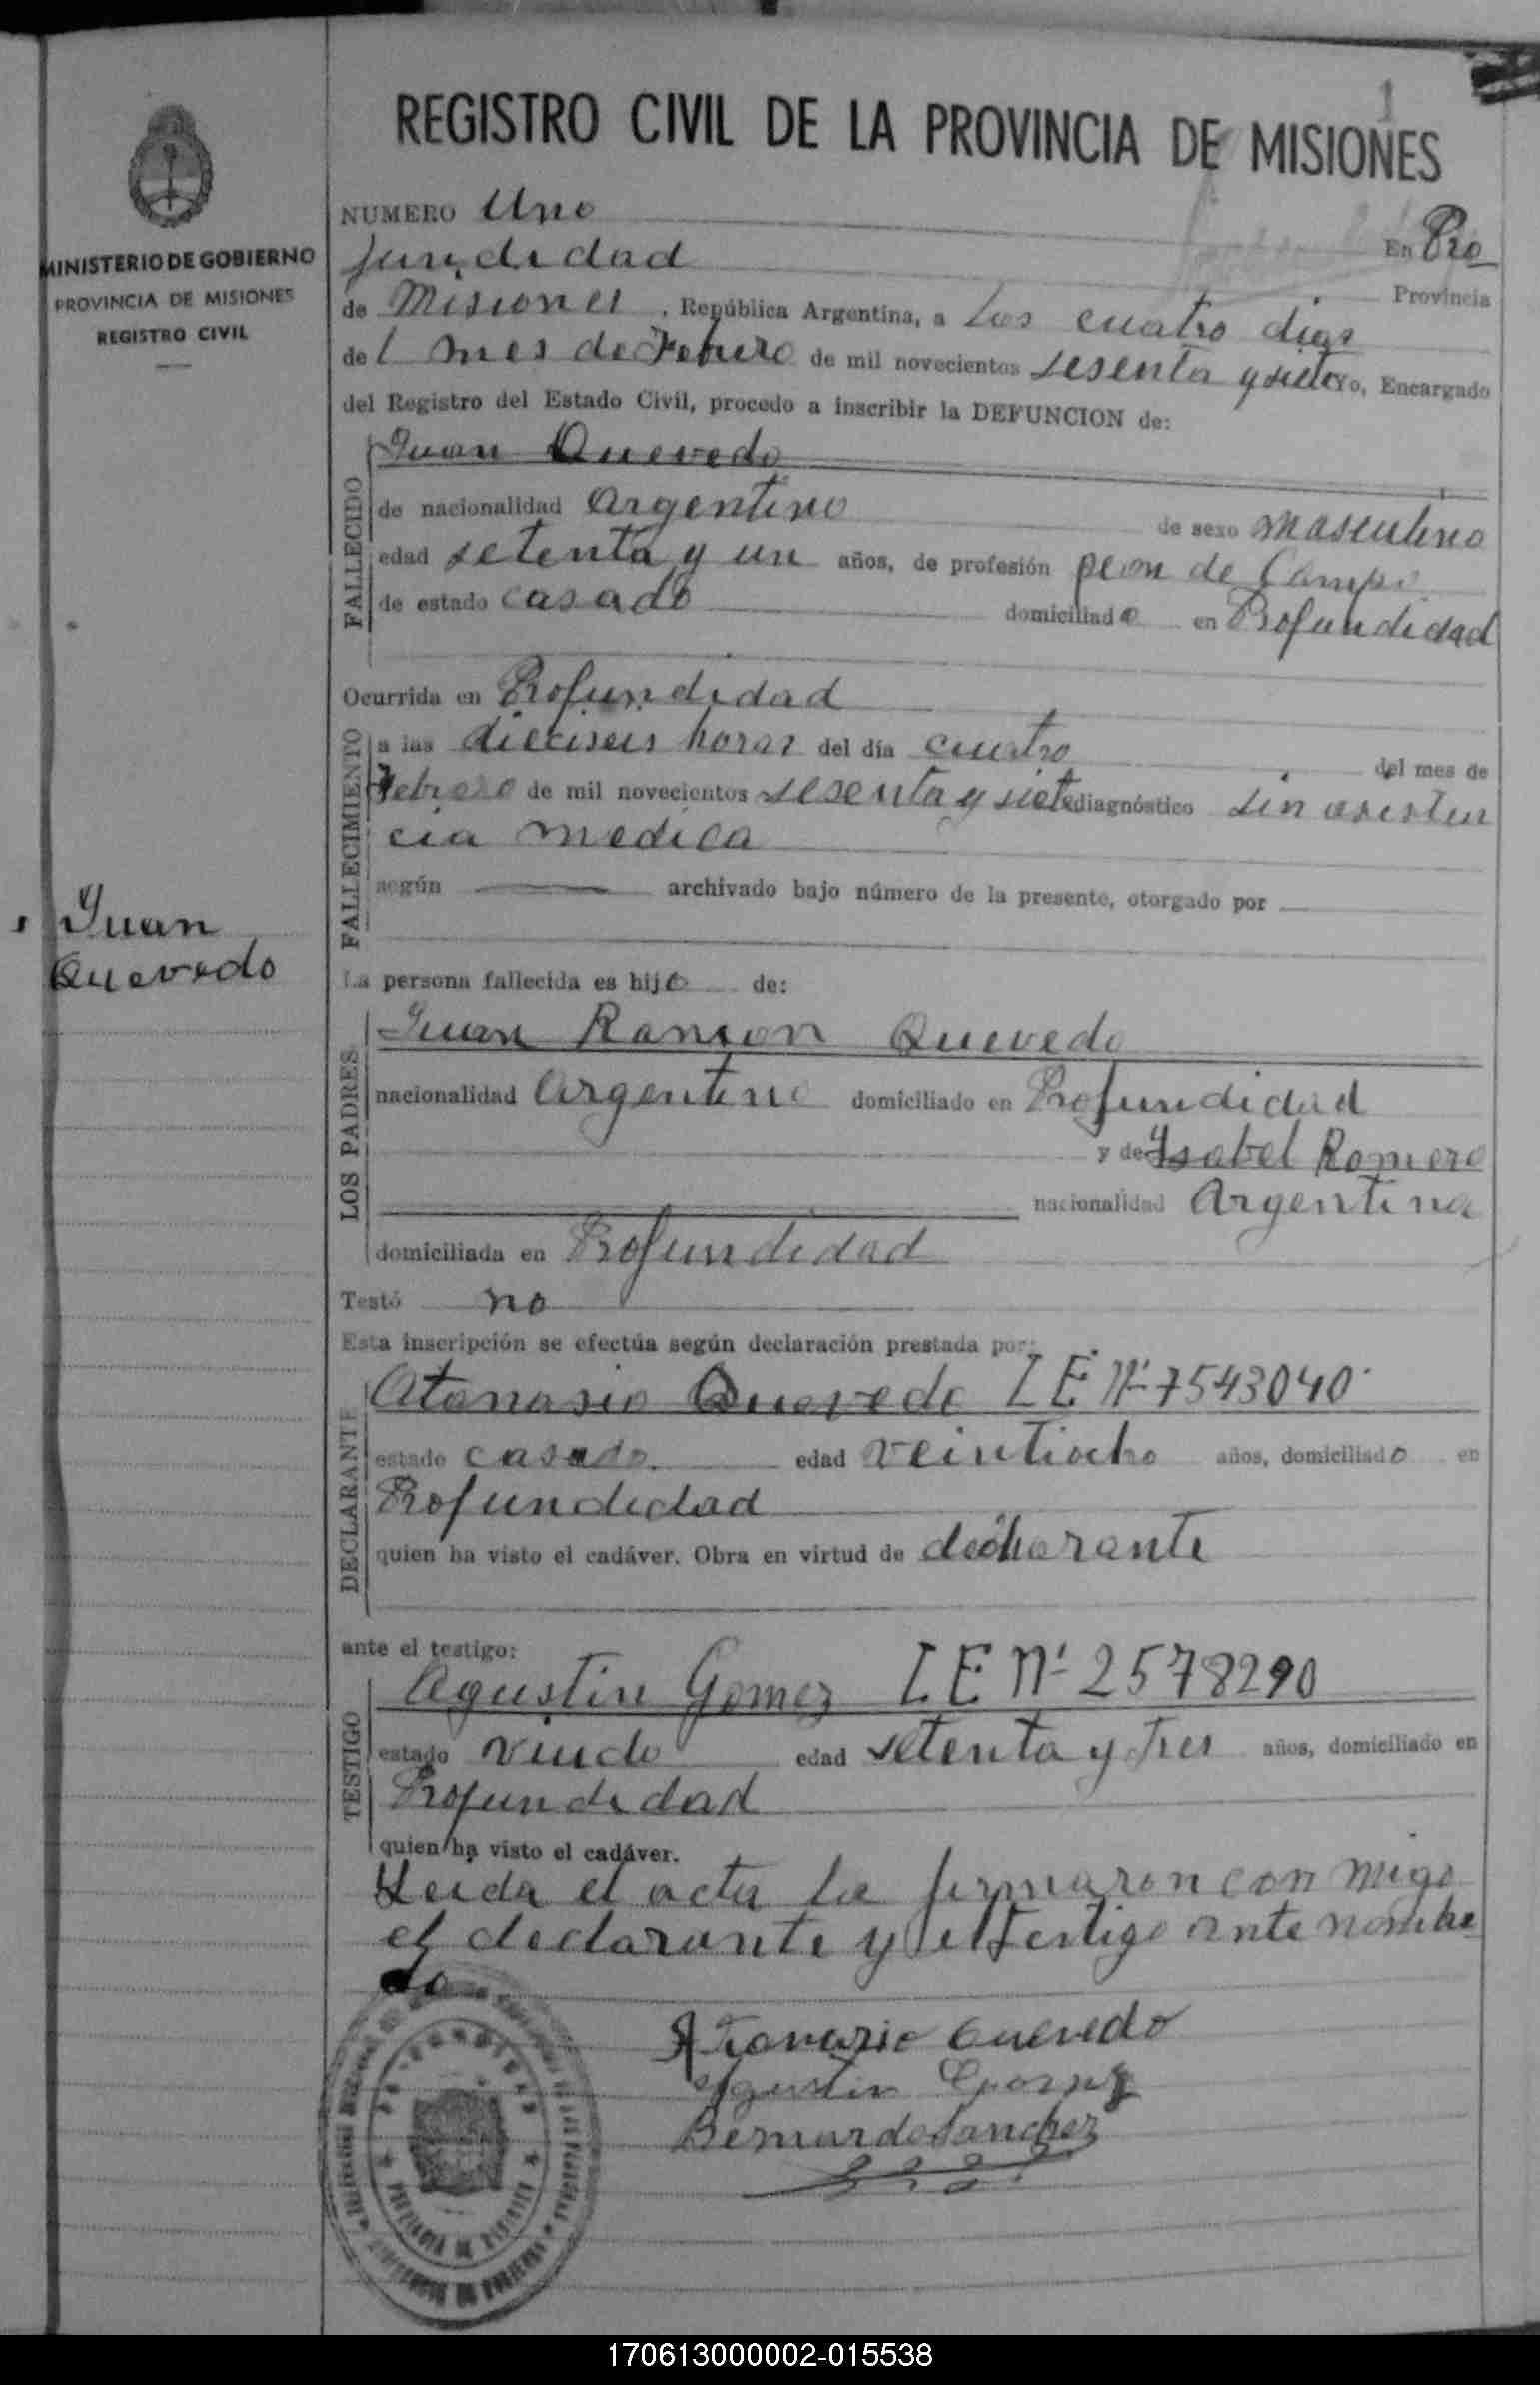 1
REGISTRO CIVIL DE LA PROVINCIA DE MISIONES
MINISTERIO DE GOBIERNO
PROVINCIA DE MISIONES
REGISTRO CIVIL
Juan
Quevedo
NUMERO Uno
En Pro
fundidad
Provincia
de Misiones, República Argentina, a los cuatro dias
del mes de Febrero de mil novecientos sesenta y siete yo, Encargado
del Registro del Estado Civil, procedo a inscribir la DEFUNCION de:
FALLECIDO
Juan Quevedo
de nacionalidad Argentino de sexo masculino
edad setenta y un años, de profesión peon de Campo
de estado casado domiciliado en Profundidad
Ocurrida en Profundidad
FALLECIMIENTO
a las dieciseis horas del día cuatro del mes de
Febrero de mil novecientos sesenta y siete diagnóstico sin asisten
cia medica
según archivado bajo número de la presente, otorgado por
La persona fallecida es hijo de:
LOS PADRES
Juan Ramon Quevedo
nacionalidad Argentino domiciliado en Profundidad
y de Ysabel Romero
nacionalidad Argentina
domiciliada en Profundidad
Testó no
Esta inscripción se efectúa según declaración prestada por:
DECLARANTE
Atanasio Quevedo L E Nº 7543040
estado casado. edad veintiocho años, domiciliado en
Profundidad
quien ha visto el cadáver. Obra en virtud de
ante el testigo:
TESTIGO
Agustin Gomez L E Nº 2578290
estado viudo edad setenta y tres años, domiciliado en
Profundidad
quien ha visto el cadáver.
Leida el acta la firmaron con migo
el declarante y el Testigo ante nombra
do
Atanasio Quevedo
Agustin Gomez
Bernardo Sanchez
PROVINCIA DE MISIONES
170613000002-015538